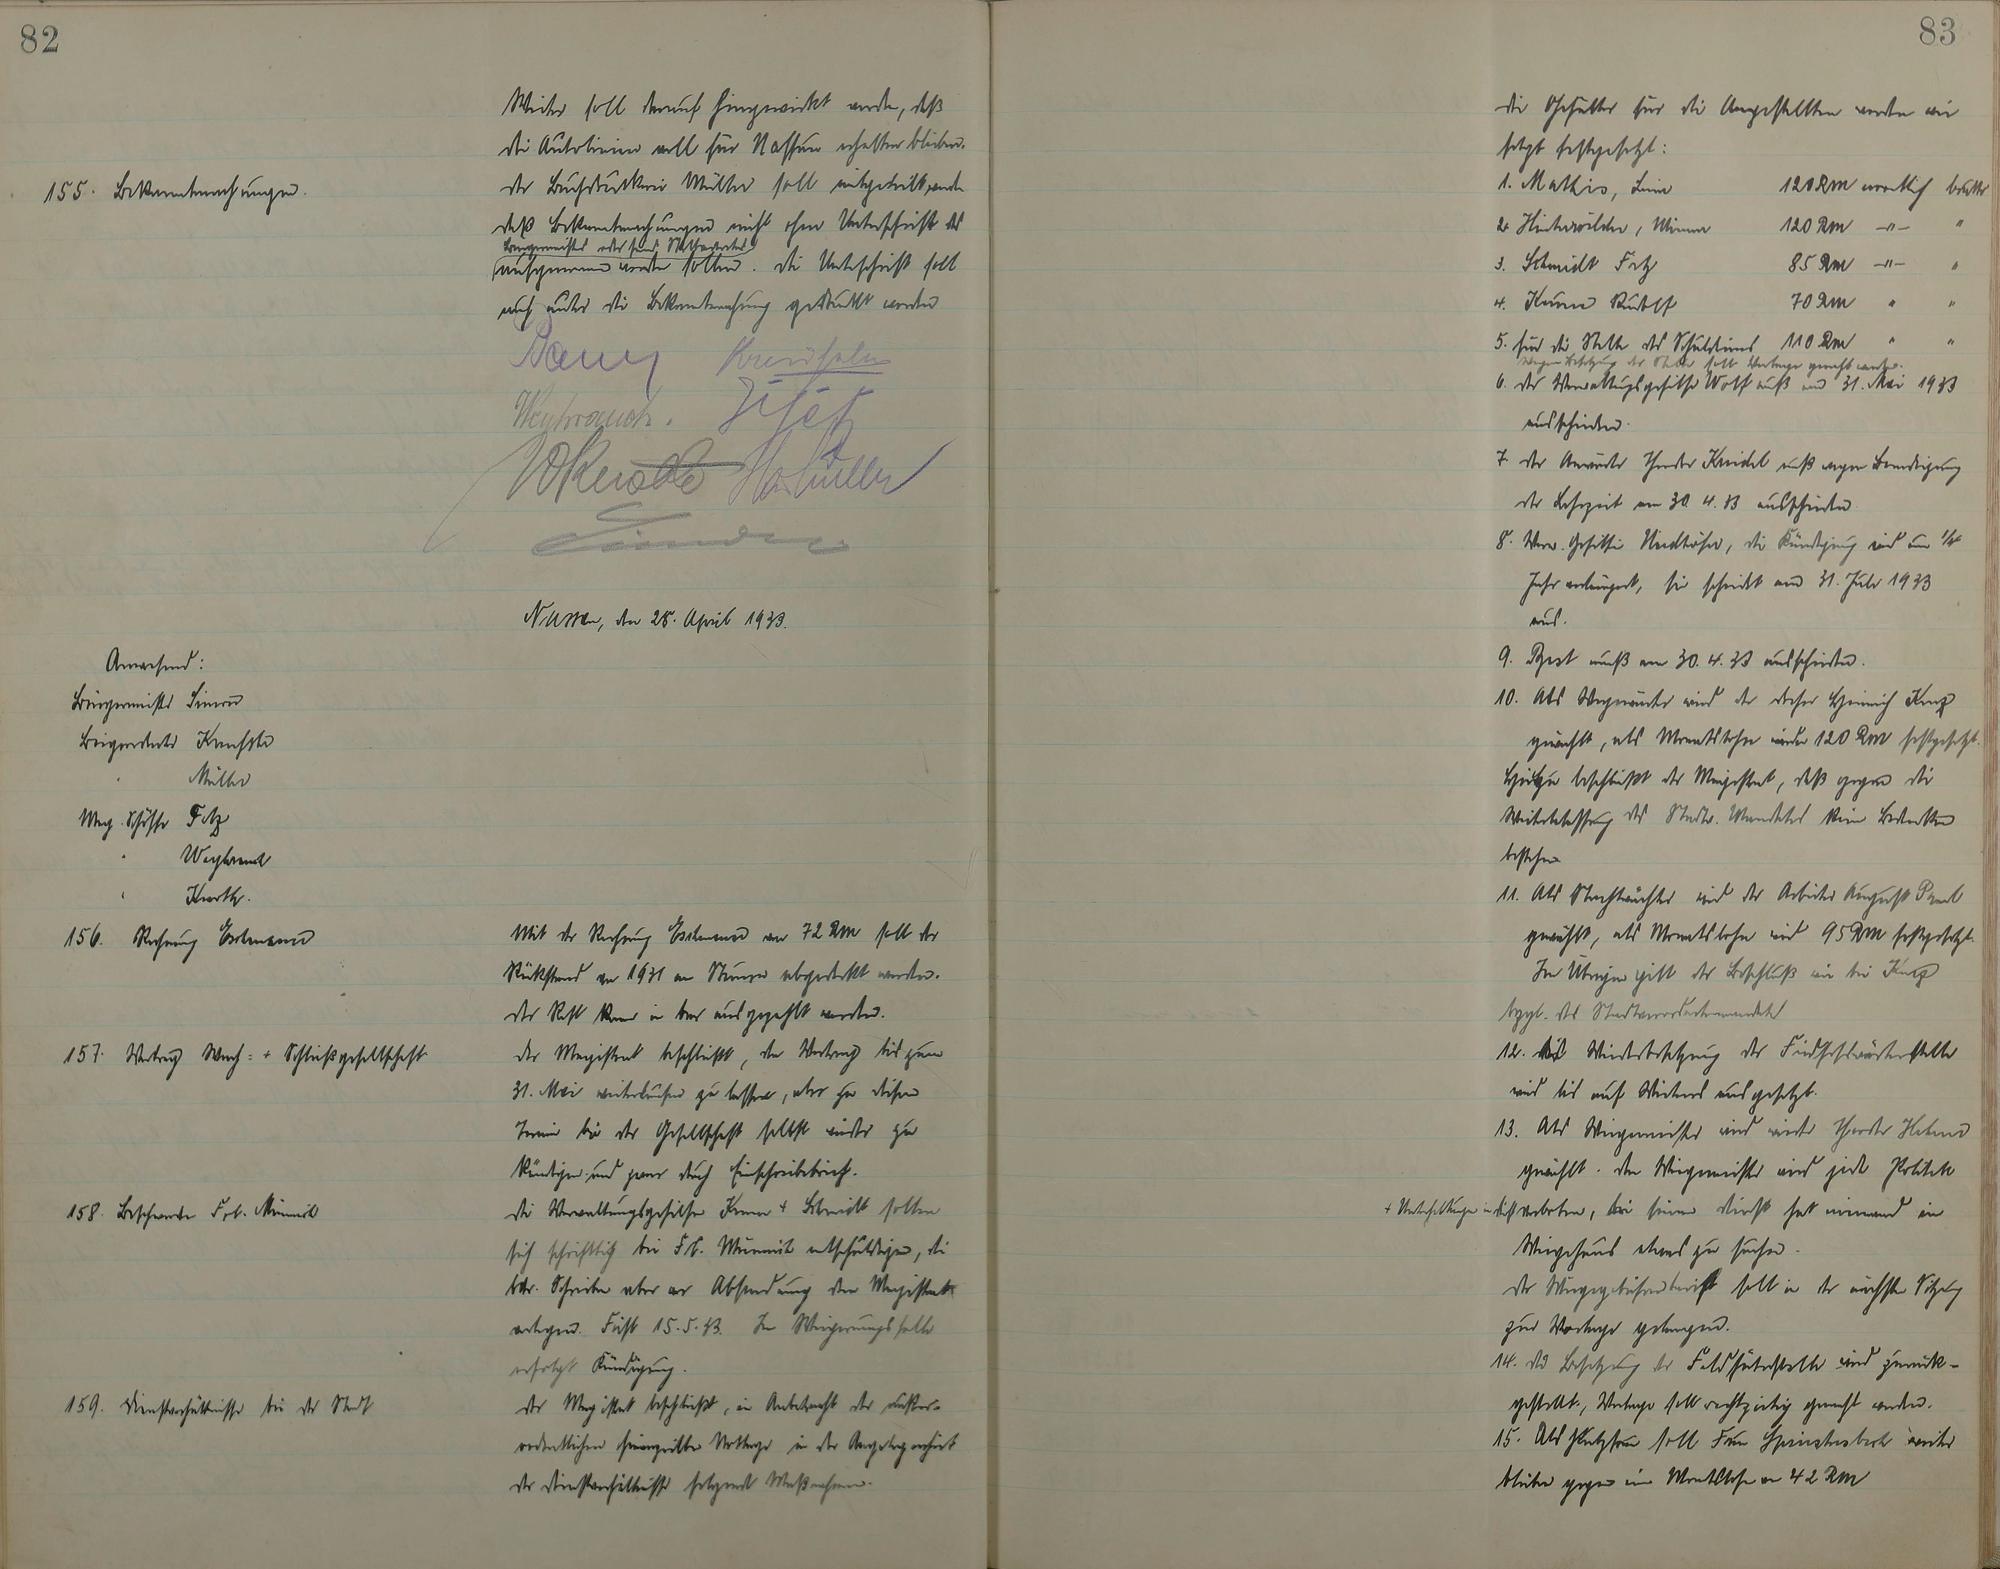 82
Weiter soll darauf hingewirkt werden, daß
die Autolinien voll für Nassau erhalten bleiben.
155. Bekanntmachungen.
Der Buchdruckerei Müller soll mitgeteilt werden
daß Bekanntmachungen nicht ohne Unterschrift des
Bürgermeisters oder seines Stellvertreters
aufgenommen werden sollen. Die Unterschrift soll
auch unter die Bekanntmachung gedruckt werden
Weyhrauch.
Nassau, den 28. April 1933.
Anwesend:
Bürgermeister
Beigeordneter
" Müller
Mag. Schöffe Fetz
" Weyhrauch
"
156. Rechnung
Mit der Rechnung von 72 RM soll der
Rückstand von 1931 an Steuern abgedeckt werden.
Der Rest kann in bar ausgezahlt werden.
157. Vertrag Wach- + Schließgesellschaft
Der Magistrat beschließt, den Vertrag bis zum
31. Mai weiterlaufen zu lassen, aber zu diesem
Termin bei der Gesellschaft selbst wieder zu
kündigen und zwar durch Einschreibebrief.
158. Beschwerde Frl.
Die Verwaltungsgehilfen + Schmidt sollen
sich schriftlich bei Frl. entschuldigen, die
betr. Schreiben aber vor Absendung dem Magistrat
vorlegen. Frist 15.5.33. Im Weigerungsfalle
erfolgt Kündigung.
159. Dienstverhältnisse bei der Stadt
Der Magistrat beschließt, in Anbetracht der außer-
ordentlichen finanziellen Notlage in der Angelegenheit
der Dienstverhältnisse folgende Maßnahmen.
83
Die Gehälter für die Angestellten werden wie
folgt festgesetzt:
1. Mathis, 120 RM monatlich brutto
2. 120 RM -"- "
3. Schmidt Fritz 85 RM -"- "
4. Rudolf 70 RM " "
5. für die Stelle des Schuldieners 110 RM " "
wegen Besetzung der Stelle soll Vorlage gemacht werden.
6. Der Verwaltungsgehilfe Wolf muß am 31. Mai 1933
ausscheiden.
7. Der Anwärter Theodor muß wegen Beendigung
der Lehrzeit am 30.4.33 ausscheiden
8. Verw. Gehilfin die Kündigung wird um 1/4
Jahr verlängert, sie scheidet am 31. Juli 1933
aus.
9. muß am 30.4.33 ausscheiden.
10. Als wird der Heinrich Kurz
gewählt, als Monatslohn werden 120 RM festgesetzt.
Hierzu beschließt der Magistrat, daß gegen die
Weiterbelassung des Stadtv. Mandates kein Bedenken
bestehen
11. Als Nachtwächter wird der Arbeiter August Paul
gewählt, als Monatslohn wird 95 RM festgesetzt.
Im Übrigen gilt der Beschluß wie bei Kurz
bzgl. des Stadtverordnetenmandates
12. Die Wiederbesetzung der Friedhofswärterstelle
wird bis auf Weiteres ausgesetzt.
13. Als Wiegemeister wird wieder Theodor
gewählt. Dem Wiegemeister wird jede Politik
+ Unterhaltungen im Dienst verboten, bei seinem Dienst hat niemand im
Wiegehaus etwas zu suchen.
Der Wiegegebührentarif soll in der nächsten Sitzung
zur Vorlage gelangen.
14. Die Besetzung der Feldhüterstelle wird zurück-
gestellt, Vorlage soll rechtzeitig gemacht werden.
15. Als Putzfrau soll Frau weiter
bleiben gegen ein Monatslohn von 42 RM